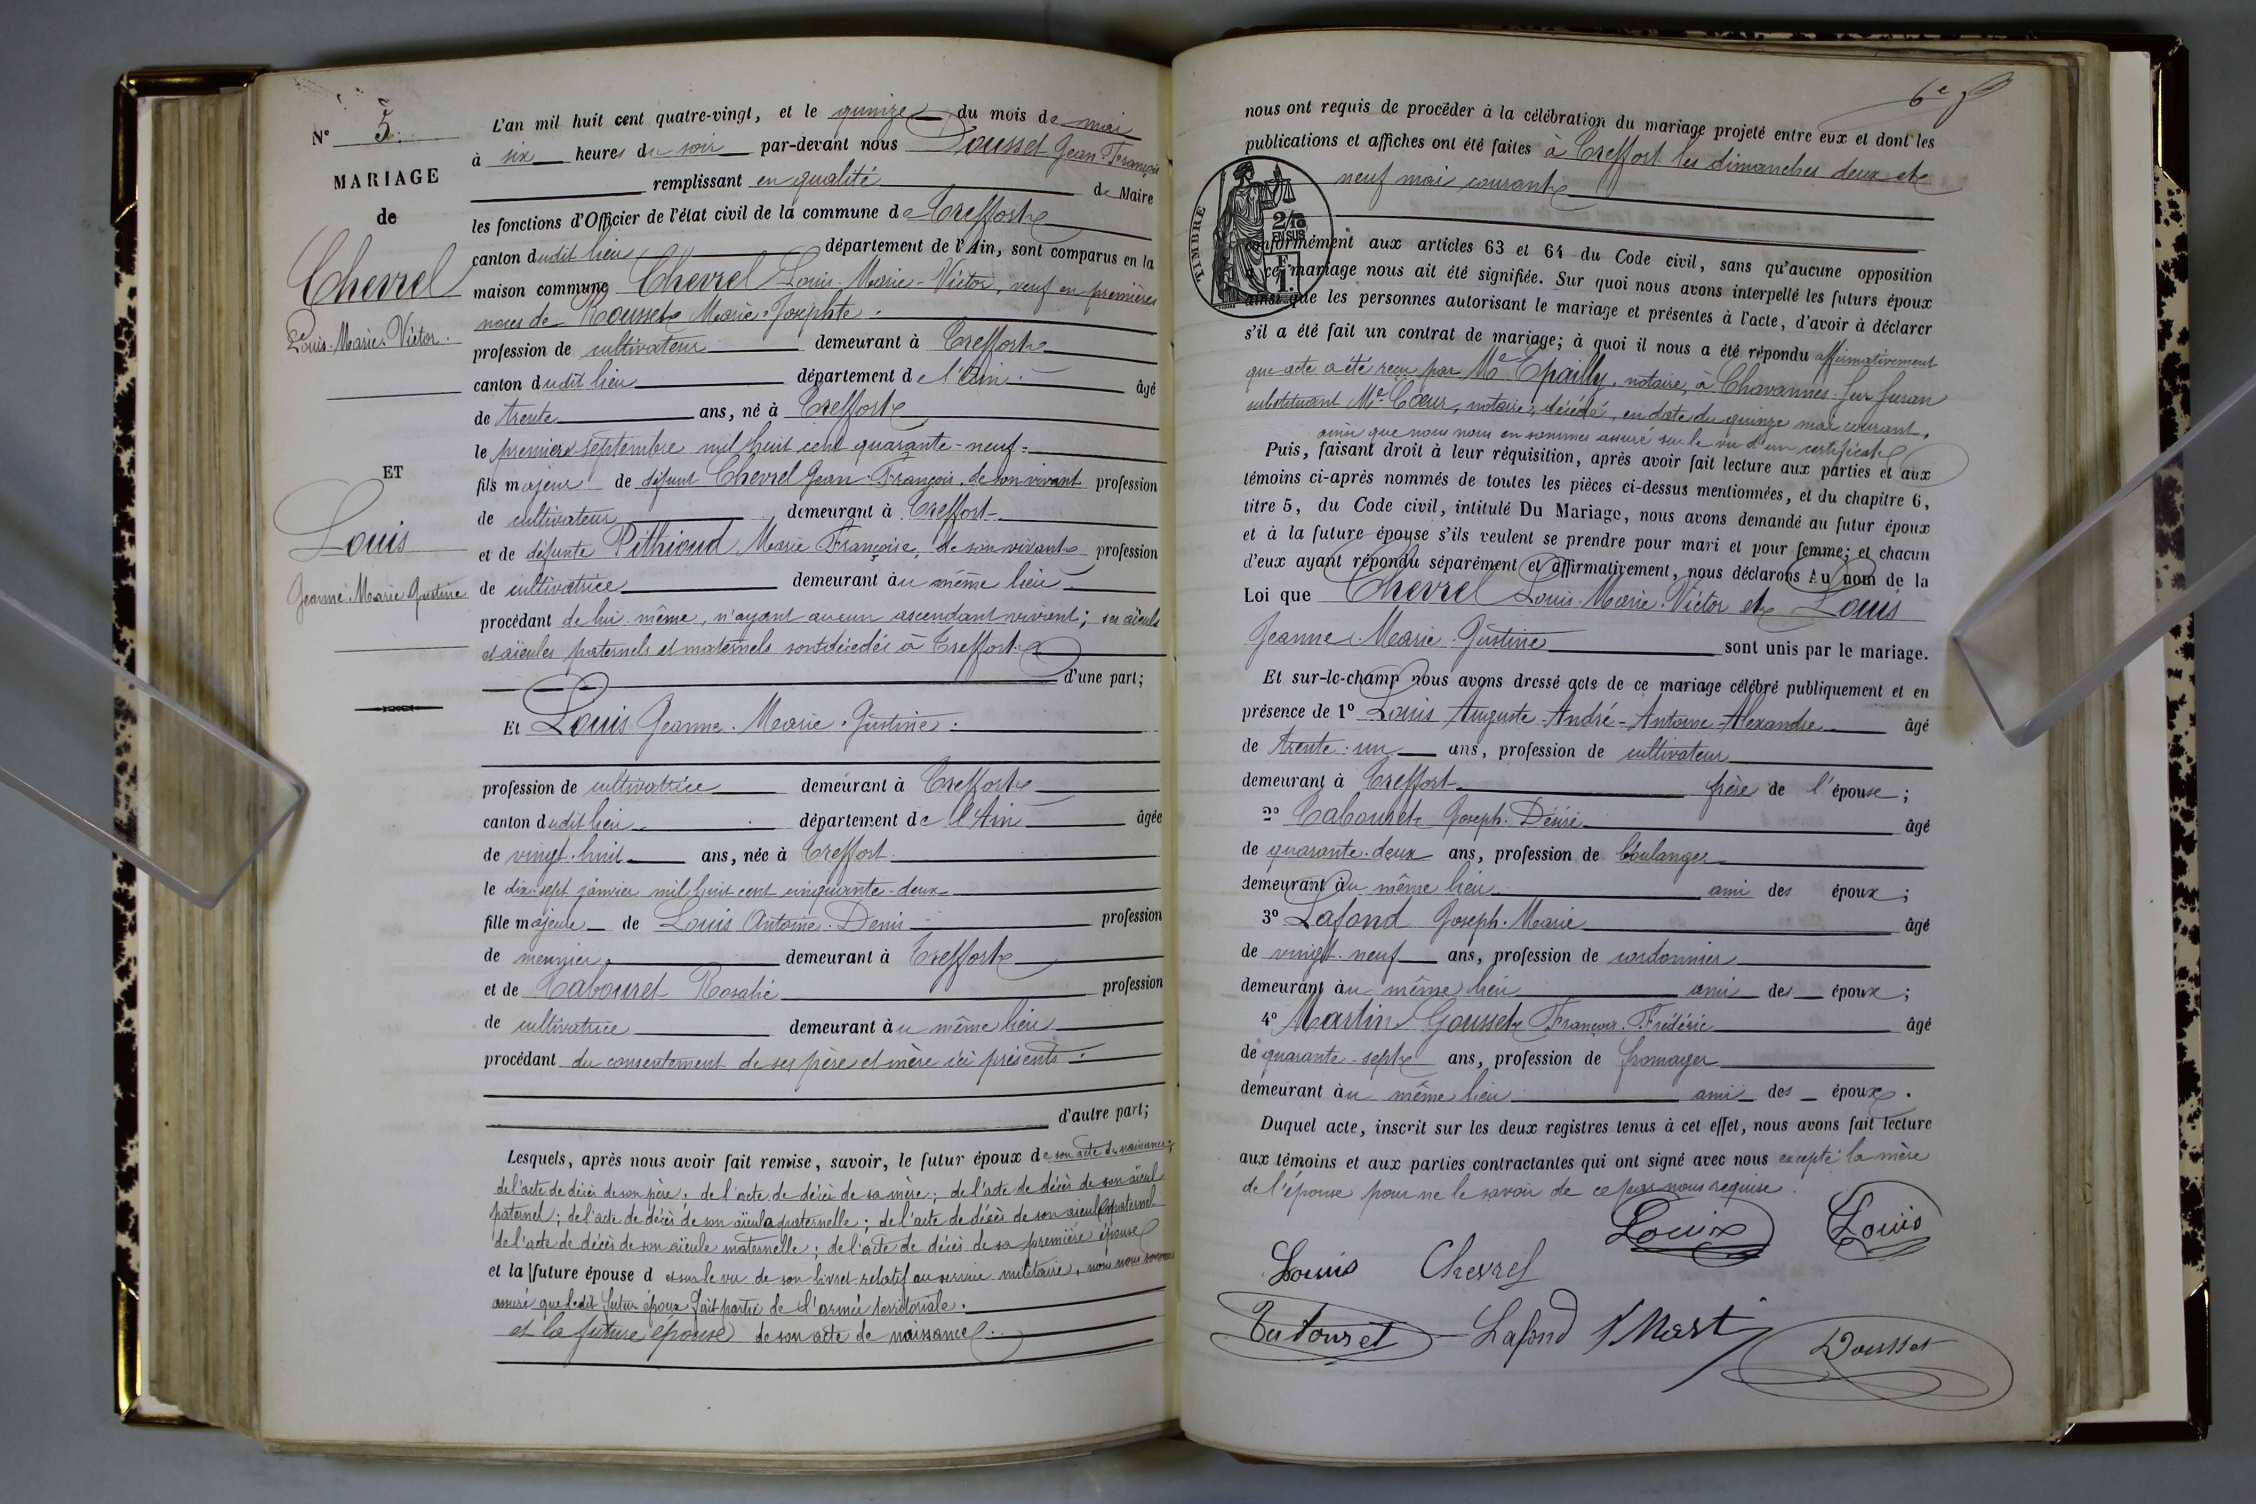 N° 5.
MARIAGE
de
Chevrel
Louis-Marie-Victor.
ET
Louis
Jeanne-Marie-Justine
L'an mil huit cent quatre-vingt, et le quinze du mois de mai
à six heures du soir par-devant nous Dousset Jean François
remplissant en qualité de Maire
les fonctions d'Officier de l'état civil de la commune de Treffort
canton dudit lieu département de l'Ain, sont comparus en la
maison commune Chevrel Louis-Marie-Victor, veuf en premières
noces de Rousset Marie-Josephte.
profession de cultivateur demeurant à Treffort
canton dudit lieu département de l'Ain. âgé
de trente ans, né à Treffort
le premier septembre mil huit cent quarante-neuf
fils majeur de défunt Chevrel Jean-François, de son vivant profession
de cultivateur demeurant à Treffort
et de défunte Pithioud Marie Françoise, de son vivant profession
de cultivatrice demeurant au même lieu
procédant de lui-même, n'ayant aucun ascendant vivant; ses aïeuls
et aïeules paternels et maternels sont décédés à Treffort
d'une part;
Et Louis Jeanne-Marie-Justine.
profession de cultivatrice demeurant à Treffort
canton dudit lieu département de l'Ain âgée
de vingt-huit ans, née à Treffort
le dix-sept janvier mil huit cent cinquante-deux
fille majeure de Louis Antoine-Denis profession
de meunier demeurant à Treffort
et de Tabouret Rosalie profession
de cultivatrice demeurant au même lieu
procédant du consentement de ses père et mère ici présents.
d'autre part;
Lesquels, après nous avoir fait remise, savoir, le futur époux de son acte de naissance;
de l'acte de décès de son père; de l'acte de décès de sa mère; de l'acte de décès de son aïeul
paternel; de l'acte de décès de son aïeule paternelle; de l'acte de décès de son aïeul maternel
de l'acte de décès de son aïeule maternelle; de l'acte de décès de sa première épouse
et la future épouse d et sur le vu de son livret relatif au service militaire, nous nous sommes
assuré que ledit futur époux fait partie de l'armée territoriale.
et la future épouse de son acte de naissance.
6e
nous ont requis de procéder à la célébration du mariage projeté entre eux et dont les
publications et affiches ont été faites à Treffort les dimanches deux et
neuf mai courant
TIMBRE
2/10
EN SUS
F.
1.
conformément aux articles 63 et 64 du Code civil, sans qu'aucune opposition
à ce mariage nous ait été signifiée. Sur quoi nous avons interpellé les futurs époux
ainsi que les personnes autorisant le mariage et présentes à l'acte, d'avoir à déclarer
s'il a été fait un contrat de mariage; à quoi il nous a été répondu affirmativement
que acte a été reçu par Me Epailly, notaire, à Chavannes-sur-Suran
substituant Me Cœur, notaire, décédé, en date du quinze mai courant,
ainsi que nous nous en sommes assuré sur le vu d'un certificat
Puis, faisant droit à leur réquisition, après avoir fait lecture aux parties et aux
témoins ci-après nommés de toutes les pièces ci-dessus mentionnées, et du chapitre 6,
titre 5, du Code civil, intitulé Du Mariage, nous avons demandé au futur époux
et à la future épouse s'ils veulent se prendre pour mari et pour femme; et chacun
d'eux ayant répondu séparément et affirmativement, nous déclarons Au nom de la
Loi que Chevrel Louis-Marie-Victor et Louis
Jeanne-Marie-Justine sont unis par le mariage.
Et sur-le-champ nous avons dressé acte de ce mariage célébré publiquement et en
présence de 1° Louis Auguste-André-Antoine-Alexandre âgé
de trente-un ans, profession de cultivateur
demeurant à Treffort frère de l'épouse;
2° Tabouret Joseph-Désiré âgé
de quarante-deux ans, profession de boulanger
demeurant au même lieu ami des époux;
3° Lafond Joseph-Marie âgé
de vingt-neuf ans, profession de cordonnier
demeurant au même lieu ami des époux;
4° Martin Gousset François-Frédéric âgé
de quarante-sept ans, profession de fromager
demeurant au même lieu ami des époux.
Duquel acte, inscrit sur les deux registres tenus à cet effet, nous avons fait lecture
aux témoins et aux parties contractantes qui ont signé avec nous excepté la mère
de l'épouse pour ne le savoir de ce par nous requise.
Louis Louis
Louis Chevrel
Tabouret Lafond Dousset